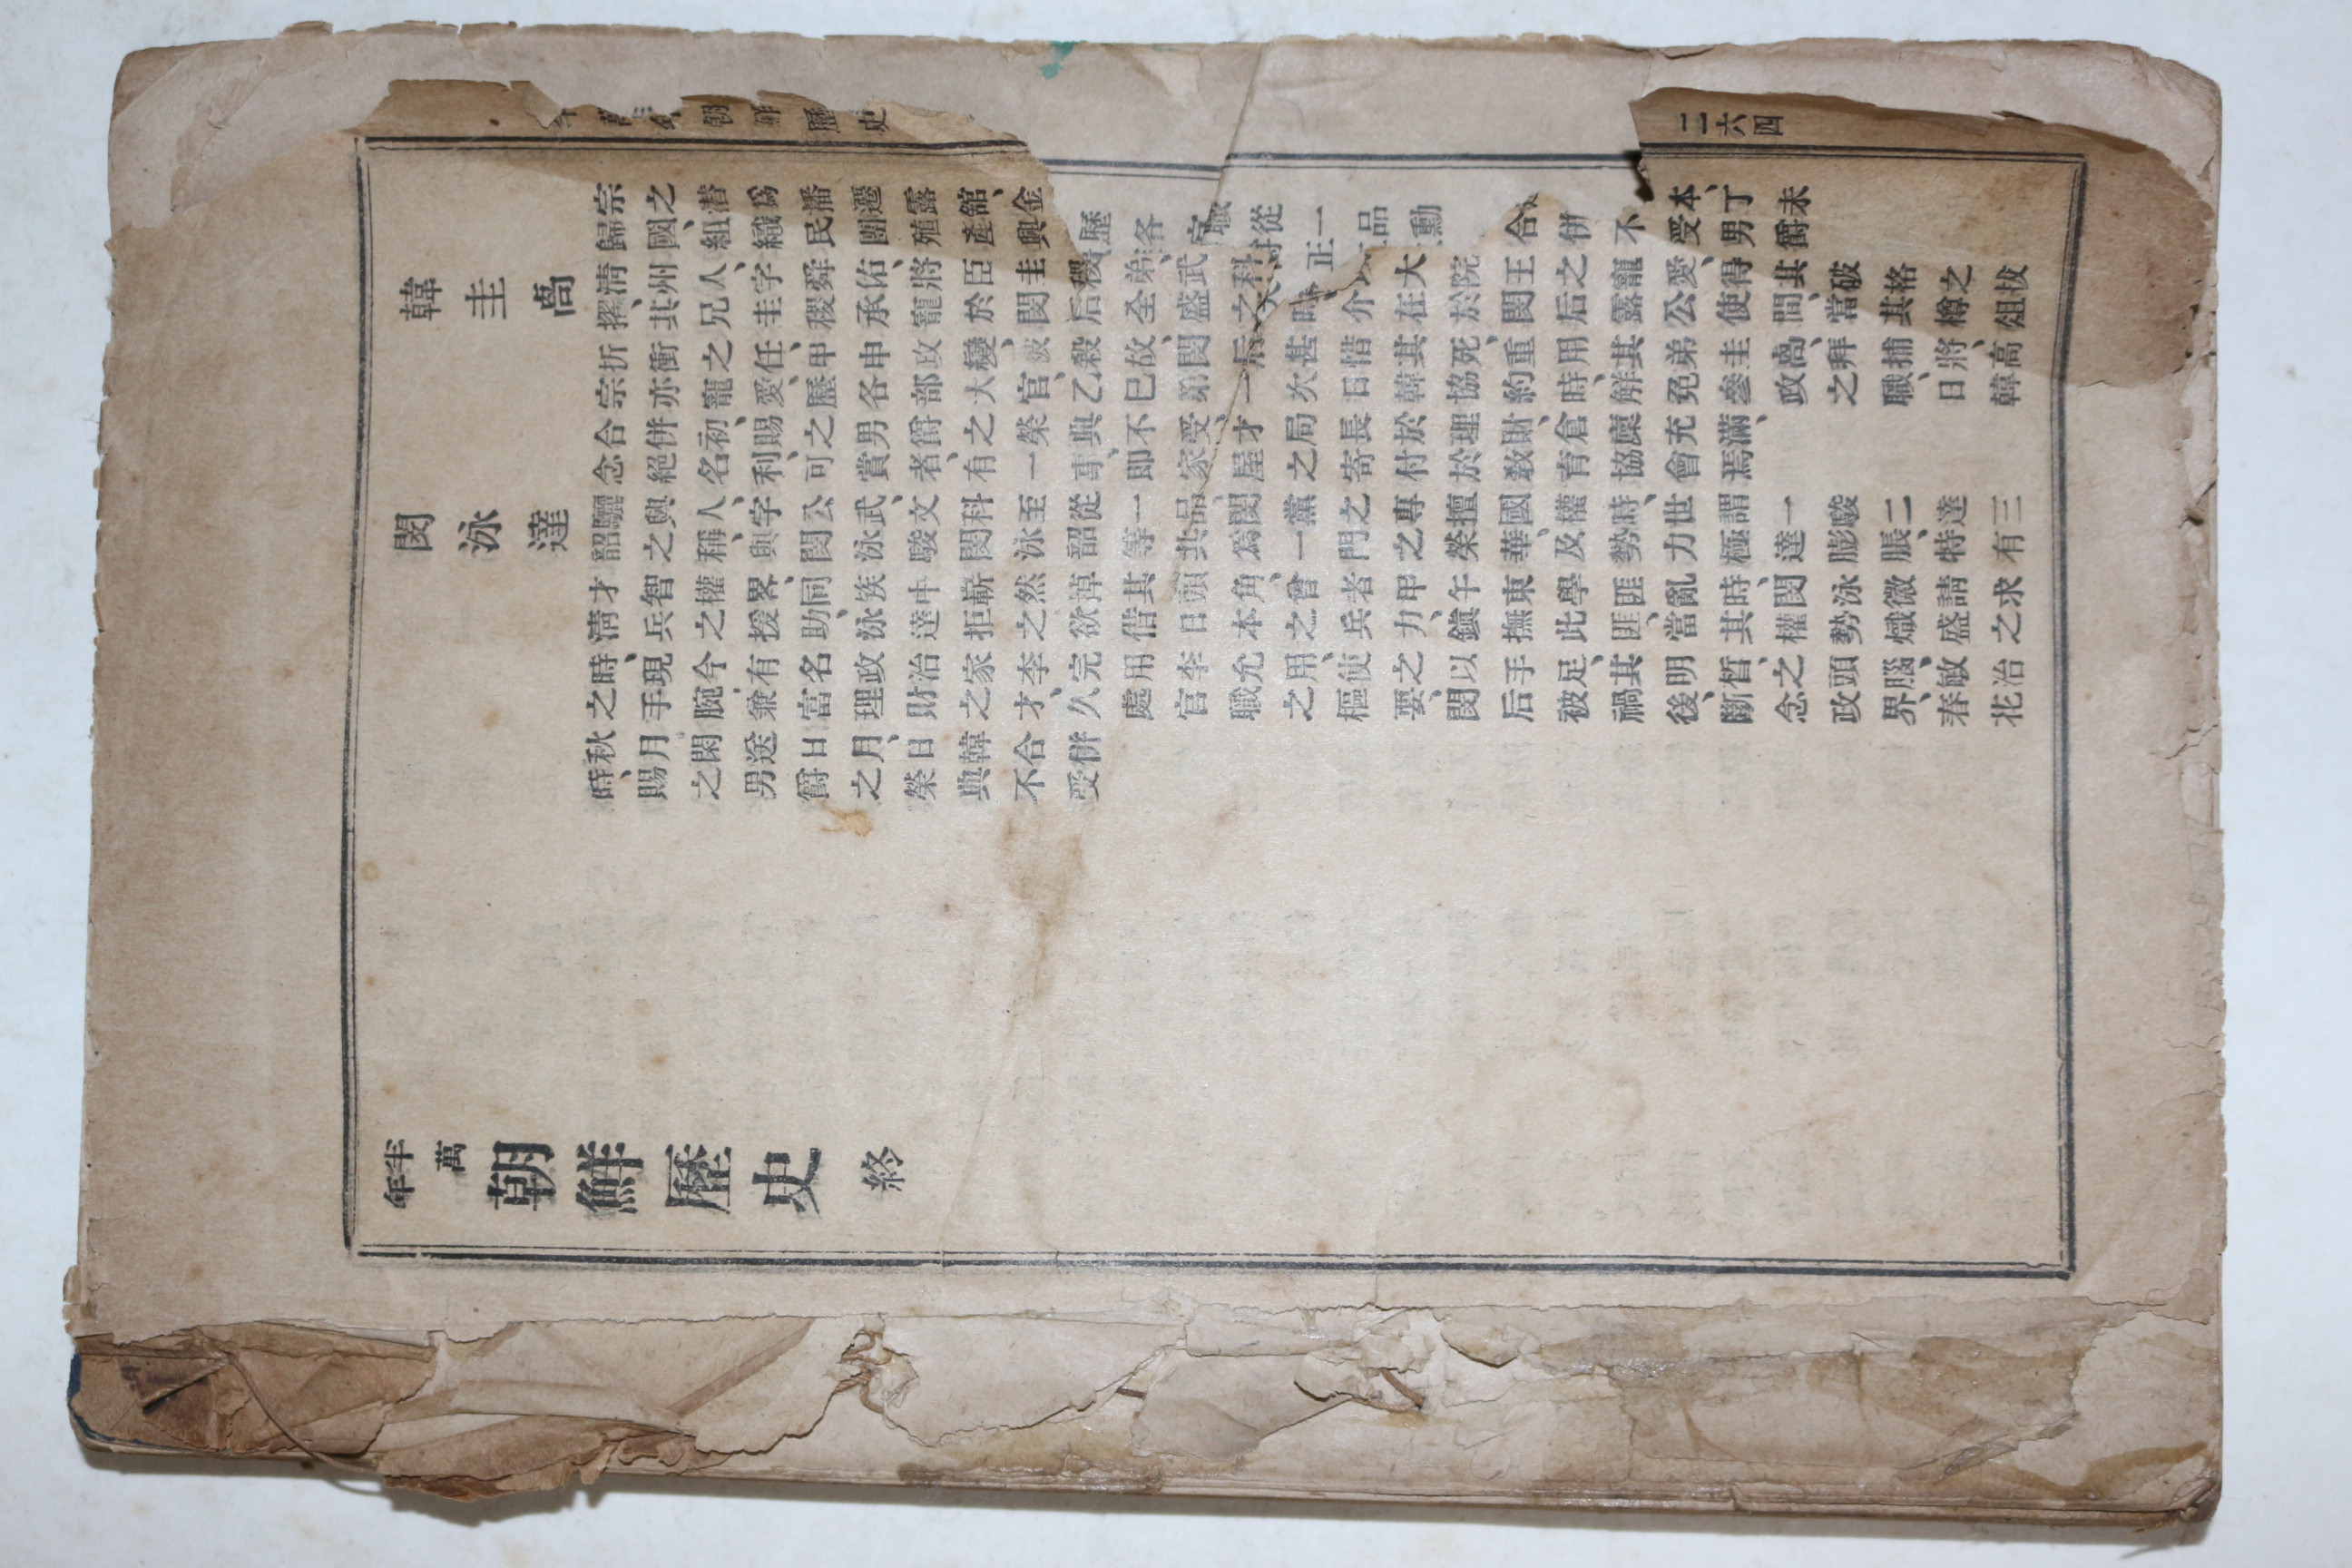 朝鮮歷史
二六四
宗之潜爲播遷露舘、金
本、丁未
歸國、組織民團殖產興
歷各
職從一品勳
合併不受男爵
韓圭卨
淸州人、字舜佑、將臣圭稷弟、武科、
大院王之寵愛、得其破格之拔
擢、其兄圭稷承寵於閔后全盛之時、介在於閔后露公使間、當其樽俎
折衝之任、甲申政變、被殺故、閔后甚惜其死、重用其弟圭卨、拜捕將、高
宗亦寵愛、歷各部大官、乙巳第一次日韓協約時、解免參政之職、日韓
合併初、賜之男爵之榮典不受、才局長於理財、倉廩充滿、
念絕名利、可賞者、有一事、即家屋之寄付於敎育協會焉
閔泳達
驪興人、字公武、文科至從一品、閔黨之專擅國權時、世謂一駿二達三
韶之稱、與閔泳駿閔泳韶等共爲一門之榮華、及勢力極達膨脹、特有
才智權畧、同族中嶄然焯其頭角、曾者甲午東學匪亂時、閔泳徽請求
淸兵之援助、泳達拒之欲借日本之兵力、鎭撫此匪、當其權勢熾盛之
時、現今有名政治家李完用李允用、使之以手足、其明晢、之頭腦、敏治
之手腕、兼富理財之才、久處官職之樞要、閔后被禍後、斷念政界、春花
秋月閑送日月、日韓合併
時、賜之男爵之榮典不受
半萬年 朝鮮歷史 終